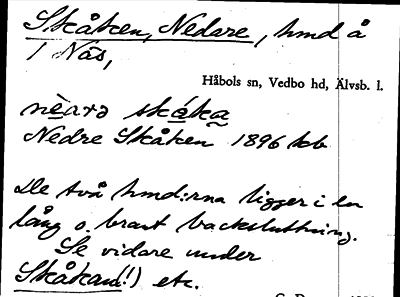 Skåken, Nedare, hmd å
1 Näs,
Håbols sn, Vedbo hd, Älvsb. l.
nèarə skáka
Nedre Skåken 1896 kb
De två hmd:rna ligger i en
lång o. brant backsluttning.
Se vidare under
Skåkan!) etc.